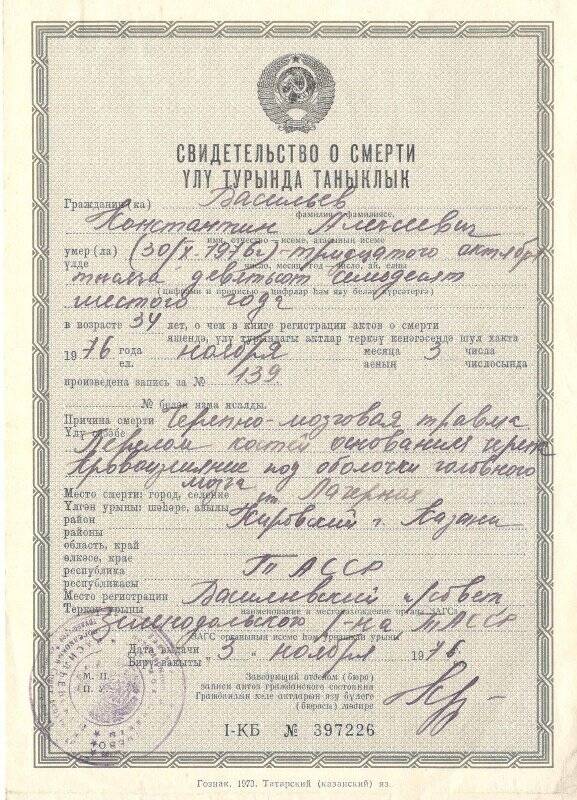 СВИДЕТЕЛЬСТВО О СМЕРТИ
ҮЛҮ ТУРЫНДА ТАНЫКЛЫК
Гражданин(ка) Васильев
фамилия — фамилиясе
Константин Алексеевич
имя, отчество — исеме, атасының исеме
умер(ла) (30/X-1976г)-тридцатого октября
үлде число, месяц, год — число, ай, елны
тысяча девятьсот семьдесят
(цифрами и прописью — цифрлар һәм язу белән күрсәтергә)
шестого года
в возрасте 34 лет, о чем в книге регистрации актов о смерти
яшендә, үлү турындагы актлар теркәү кенәгәсендә шул хакта
1976 года ноября месяца 3 числа
ел. аеның числосында
произведена запись за № 139.
№ белән язма ясалды.
Причина смерти Черепно-мозговая травма
Үлү сәбәбе
Перелом костей основания череп
Кровоизлияние под оболочки головного
мозга
Место смерти: город, селение ст Лагерная
Үлгән урыны: шәһәре, авылы
район Кировский г. Казани
районы
область, край
өлкәсе, крае
республика ТАССР
республикасы
Место регистрации Васильевский п/совет
Теркәү урыны наименование и местонахождение органа ЗАГСа
Зеленодольского р-на ТАССР
ЗАГС органының исеме һәм урнашкан урыны
Дата выдачи „3" ноября 1976г.
Бирү вакыты
М. П.
П. У.
Заведующий отделом (бюро)
записи актов гражданского состояния
Гражданлык хәле актларын язу бүлеге
(бюросы) мөдире
I-КБ № 397226
Гознак. 1973. Татарский (казанский) яз.